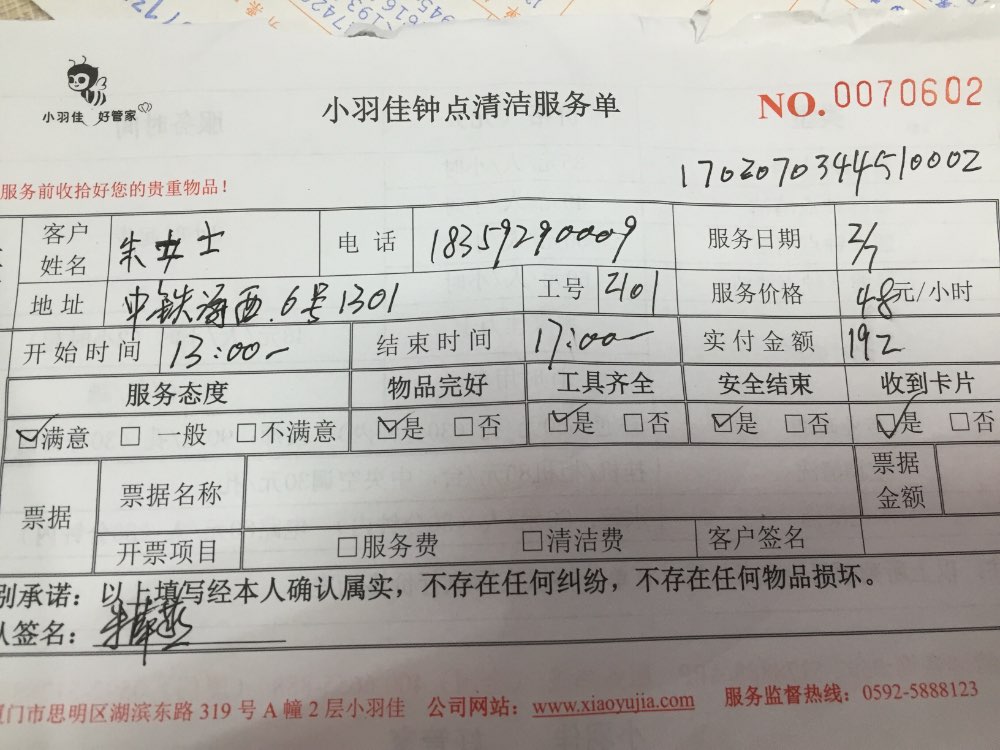 小羽佳 好管家
小羽佳钟点清洁服务单
NO. 0070602
1702070344510002
服务前收拾好您的贵重物品！
客户姓名 朱女士 电话 18359290009 服务日期 2/7
地址 中铁海西.6号1301 工号 2101 服务价格 48元/小时
开始时间 13:00 结束时间 17:00 实付金额 192
服务态度 物品完好 工具齐全 安全结束 收到卡片
☑满意 □一般 □不满意 ☑是 □否 ☑是 □否 ☑是 □否 ☑是 □否
票据 票据名称 票据金额
开票项目 □服务费 □清洁费 客户签名
别承诺：以上填写经本人确认属实，不存在任何纠纷，不存在任何物品损坏。
人签名：
厦门市思明区湖滨东路 319 号 A 幢 2 层小羽佳 公司网站：www.xiaoyujia.com 服务监督热线：0592-5888123